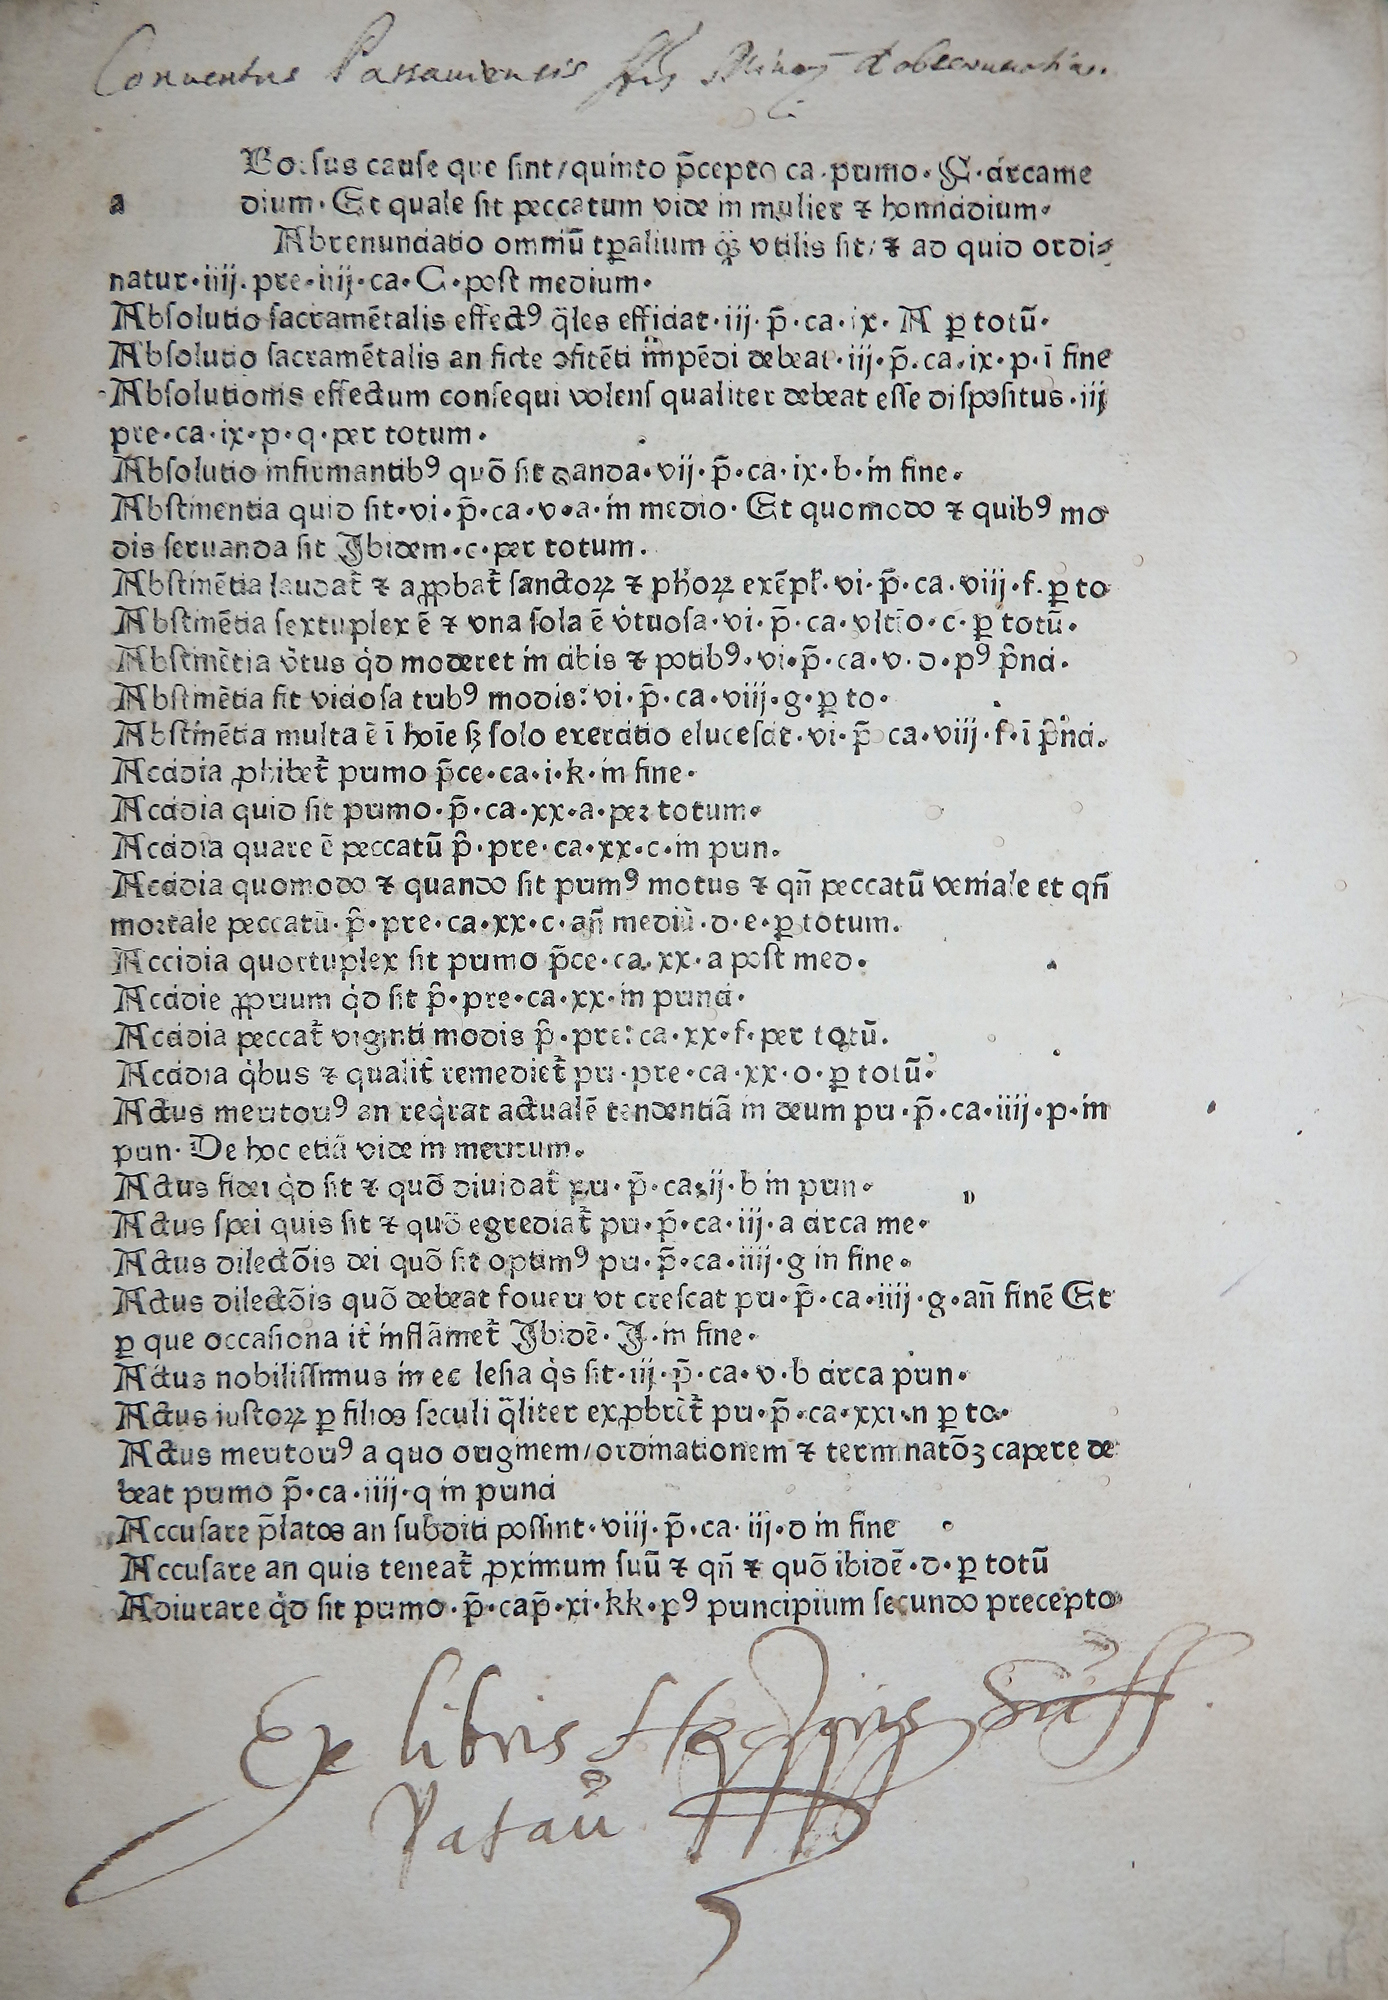 Conuentus Passauiensis ffr̄is Minoꝝ d obseruantia.
Boꝛsus cause que sint/quinto p̄cepto ca·primo·C·circame
a dium·Et quale sit peccatum vide in mulier ⁊ homicidium·
Abrenunciatio omniū tꝑalium q̄ꝫ vtilis sit/⁊ ad quid ordi⸗
natur·iiij·pre·iiij·ca·C·post medium·
Absolutio sacramētalis effectꝰ q̄les efficiat·iij·p̄·ca·ix·A ꝑ totū·
Absolutio sacramētalis an ficte ꝯfitēti īmpēdi debeat·iij·p̄·ca·ix·p·ī fine
Absolutionis effectum consequi volens qualiter debeat esse dispositus·iij
pre·ca·ix·p·q·per totum·
Absolutio infirmantibꝰ quō sit danda·vij·p̄·ca·ix·b·in fine·
Abstinentia quid sit·vi·p̄·ca·v·a·in medio·Et quomodo ⁊ quibꝰ mo
dis seruanda sit Ibidem·c·per totum·
Abstinētia laudat̄ ⁊ aꝓpbat̄ sanctoꝝ ⁊ ph̄oꝝ exēpl̄·vi·p̄·ca·viij·f·ꝑ to
Abstinētia sextuplex ē ⁊ vna sola ē v̇tuosa·vi·p̄·ca·vltīo·c·ꝑ totū·
Abstinētia v̇tus q̇d moderet in cibis ⁊ potibꝰ·vi·p̄·ca·v·d·pꝰ p̄nci·
Abstinētia fit viciosa tribꝰ modis:vi·p̄·ca·viij·g·ꝑ to·
Abstinētia multa ē ī hoīe sꝫ solo exercitio elucescit·vi·p̄ ca·viij·f·ī p̄nci·
Accidia ꝓhibet̄ primo p̄ce·ca·i·k·in fine·
Accidia quid sit primo·p̄·ca·xx·a·peꝛ totum·
Accidia quare ē peccatū p̄·pre·ca·xx·c·in prin·
Accidia quomodo ⁊ quando sit primꝰ motus ⁊ qn̄ peccatū veniale et qn̄
moꝛtale peccatū·p̄·pre·ca·xx·c·an̄ mediū·d·e·ꝑ totum·
Accidia quortuplex sit primo p̄ce·ca·xx·a post med·
Accidie ꝓprium q̇d sit p̄·pre·ca·xx·in princi·
Accidia peccat̄ viginti modis p̄·pre:ca·xx·f·per totū·
Accidia q̇bus ⁊ qualit̄ remediet̄ pri·pre·ca·xx·o·ꝑ totū·
Actus meritoriꝰ an req̇rat actualē tendentiā in deum pri·p̄·ca·iiij·p·in
prin·De hoc etiā vide in meritum·
Actus fidei q̇d sit ⁊ quō diuidat̄ pri·p̄·ca·ij·b in prin·
Actus spei quis sit ⁊ quō egrediat̄ pri·p̄·ca·iij·a circa me·
Actus dilectōis dei quō sit optimꝰ pri·p̄·ca·iiij·g in fine·
Actus dilectōis quō debeat foueri vt crescat pri·p̄·ca·iiij·g·an̄ finē Et
ꝑ que occasiona it̄ inflāmet̄ Ibidē·I·in fine·
Actus nobilissimus in ec lesia q̇s sit·iij·p̄·ca·v·b circa prin·
Actus iustoꝝ ꝑ filios seculi q̄liter exꝓbrēt̄ pri·p̄·ca·xxi·n ꝑ to·
Actus meritoriꝰ a quo originem/ordinationem ⁊ terminatōꝫ capere de
beat primo p̄·ca·iiij·q in princi
Accusare p̄latos an subditi possint·viij·p̄·ca·iij·d in fine
Accusare an quis teneat̄ ꝓximum suū ⁊ qn̄ ⁊ quō ibidē·d·ꝑ totū
Adiurare q̇d sit primo·p̄·cap̄·xi·kk·pꝰ principium secundo precepto
Ex libris
Patau